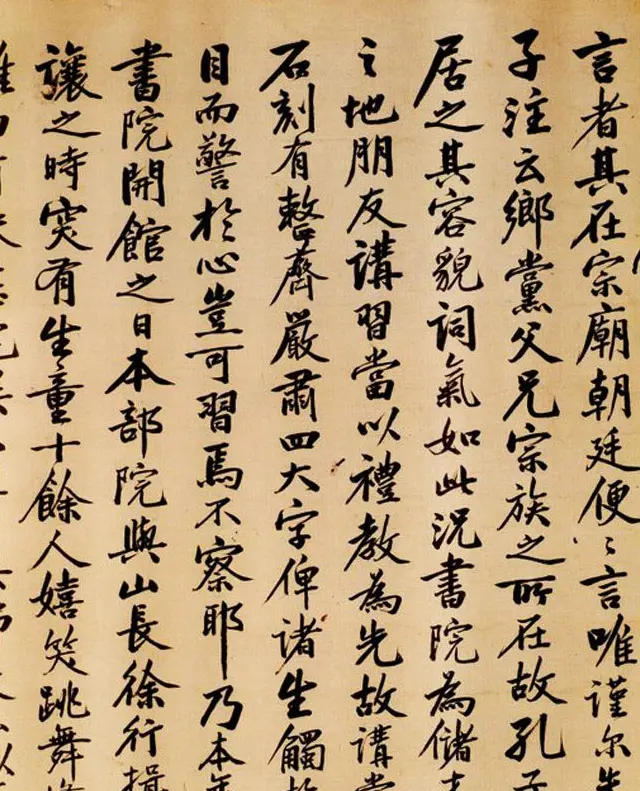 言者其在宗廟朝廷便〻言唯謹尔朱
子注云鄉黨父兄宗族之所在故孔子
居之其容貌詞氣如此況書院為儲才
之地朋友講習當以禮教為先故講堂
石刻有整齊嚴肅四大字俾諸生觸於
目而警於心豈可習焉不察耶乃本年
書院開館之日本部院與山長徐行揖
讓之時突有生童十餘人嬉笑跳舞